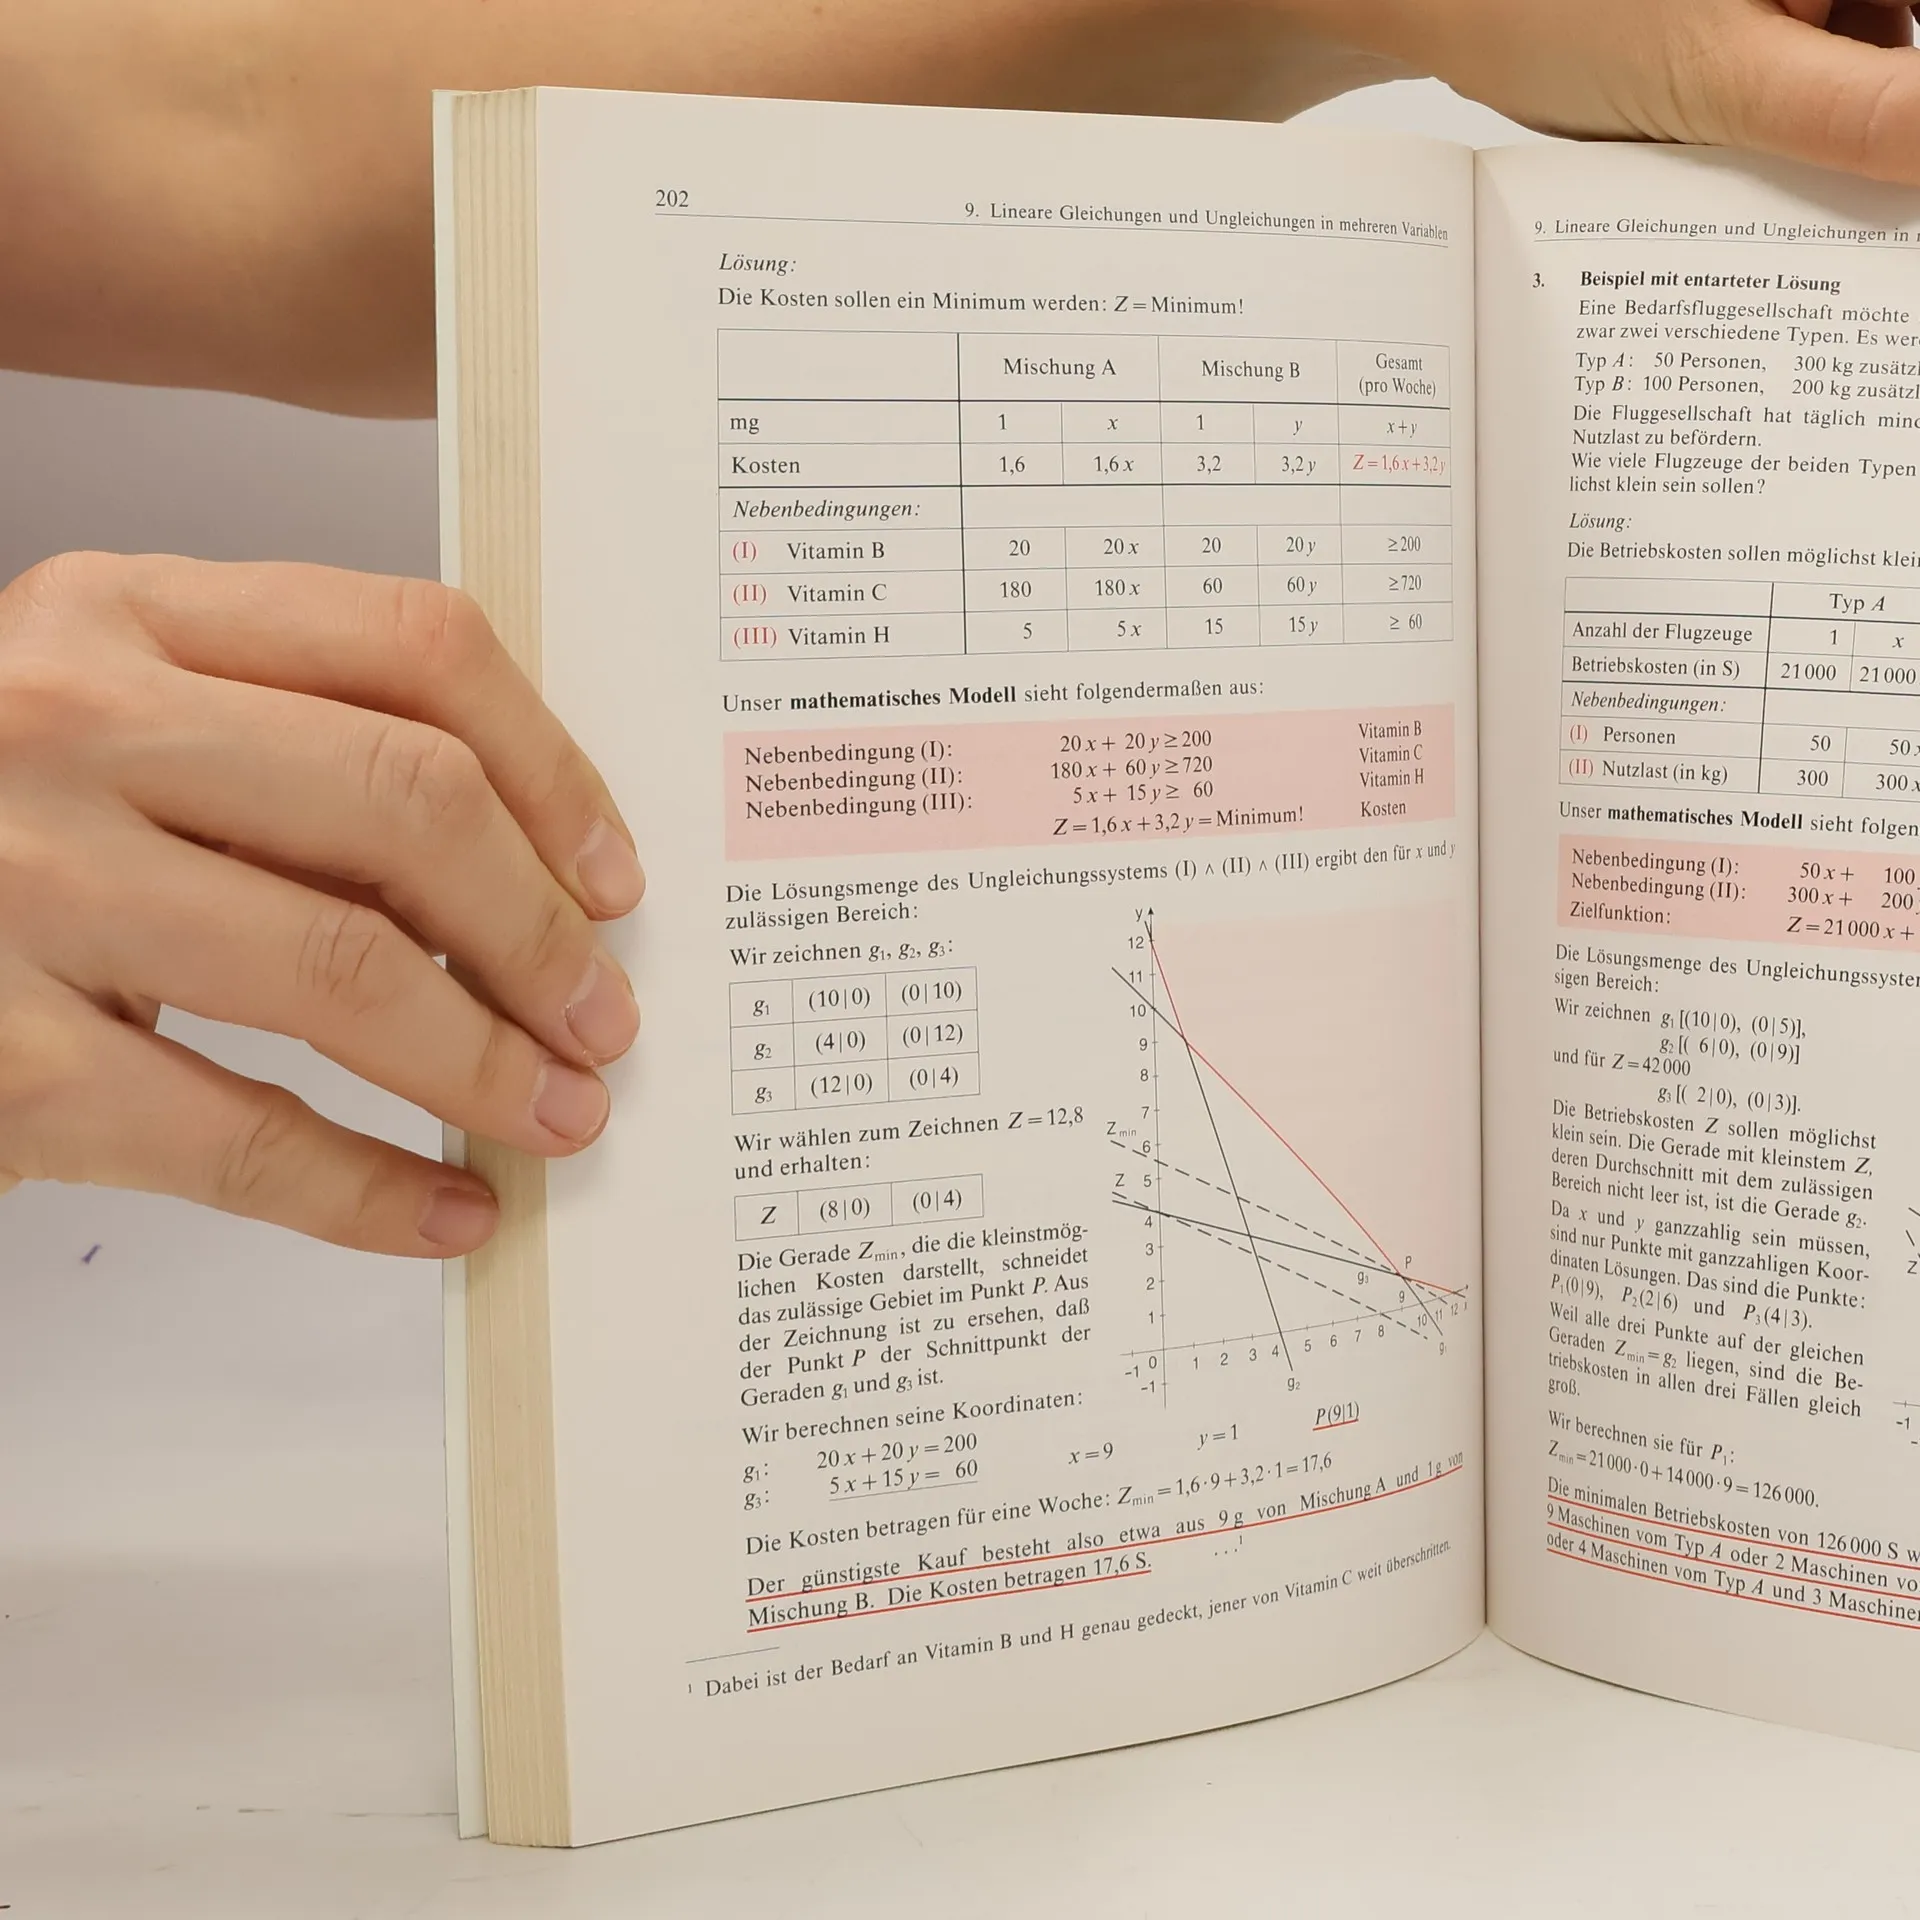 202
9. Lineare Gleichungen und Ungleichungen in mehreren Variablen
Lösung:
Die Kosten sollen ein Minimum werden: Z = Minimum!
Mischung A Mischung B Gesamt (pro Woche)
mg 1 x 1 y x+y
Kosten 1,6 1,6 x 3,2 3,2 y Z=1,6x+3,2y
Nebenbedingungen:
(I) Vitamin B 20 20 x 20 20 y ≥200
(II) Vitamin C 180 180 x 60 60 y ≥720
(III) Vitamin H 5 5 x 15 15 y ≥ 60
Unser mathematisches Modell sieht folgendermaßen aus:
Nebenbedingung (I): 20 x + 20 y ≥ 200 Vitamin B
Nebenbedingung (II): 180 x + 60 y ≥ 720 Vitamin C
Nebenbedingung (III): 5 x + 15 y ≥ 60 Vitamin H
Z = 1,6 x + 3,2 y = Minimum! Kosten
Die Lösungsmenge des Ungleichungssystems (I) ∧ (II) ∧ (III) ergibt den für x und y
zulässigen Bereich:
Wir zeichnen g₁, g₂, g₃:
g₁ (10|0) (0|10)
g₂ (4|0) (0|12)
g₃ (12|0) (0|4)
Wir wählen zum Zeichnen Z = 12,8
und erhalten:
Z (8|0) (0|4)
Die Gerade Zmin, die die kleinstmög-
lichen Kosten darstellt, schneidet
das zulässige Gebiet im Punkt P. Aus
der Zeichnung ist zu ersehen, daß
der Punkt P der Schnittpunkt der
Geraden g₁ und g₃ ist.
y
12
11
10
9
8
7
Zmin
6
Z 5
4
3
2
1
-1 0 1 2 3 4 5 6 7 8 9 10 11 12 x
-1
P
g₃
g₂
g₁
Wir berechnen seine Koordinaten:
g₁: 20 x + 20 y = 200
g₃: 5 x + 15 y = 60
x = 9 y = 1 P(9|1)
Die Kosten betragen für eine Woche: Zmin = 1,6·9 + 3,2·1 = 17,6
Der günstigste Kauf besteht also etwa aus 9 g von Mischung A und 1 g von
Mischung B. Die Kosten betragen 17,6 S. ...¹
¹ Dabei ist der Bedarf an Vitamin B und H genau gedeckt, jener von Vitamin C weit überschritten.
9. Lineare Gleichungen und Ungleichungen in
3. Beispiel mit entarteter Lösung
Eine Bedarfsfluggesellschaft möchte
zwar zwei verschiedene Typen. Es
Typ A: 50 Personen, 300 kg
Typ B: 100 Personen, 200 kg
Die Fluggesellschaft hat täglich
Nutzlast zu befördern.
Wie viele Flugzeuge der beiden Typen
lichst klein sein sollen?
Lösung:
Die Betriebskosten sollen möglichst
Typ A
Anzahl der Flugzeuge 1 x
Betriebskosten (in S) 21000 21000
Nebenbedingungen:
(I) Personen 50 50
(II) Nutzlast (in kg) 300 300
Unser mathematisches Modell sieht
Nebenbedingung (I): 50 x + 100
Nebenbedingung (II): 300 x + 200
Zielfunktion: Z = 21000 x +
Die Lösungsmenge des
sigen Bereich:
Wir zeichnen g₁ [(10|0), (0|5)],
g₂ [( 6|0), (0|9)]
und für Z = 42000
g₃ [( 2|0), (0|3)].
Die Betriebskosten Z sollen möglichst
klein sein. Die Gerade mit kleinstem Z,
deren Durchschnitt mit dem zulässigen
Bereich nicht leer ist, ist die Gerade g₂.
Da x und y ganzzahlig sein müssen,
sind nur Punkte mit ganzzahligen Koor-
dinaten Lösungen. Das sind die Punkte:
P₁(0|9), P₂(2|6) und P₃(4|3).
Weil alle drei Punkte auf der gleichen
Geraden Zmin = g₂ liegen, sind die Be-
triebskosten in allen drei Fällen gleich
groß.
Z
-1
Wir berechnen sie für P₁:
Zmin = 21000·0 + 14000·9 = 126000.
Die minimalen Betriebskosten von 126000 S
9 Maschinen vom Typ A oder 2 Maschinen
oder 4 Maschinen vom Typ A und 3